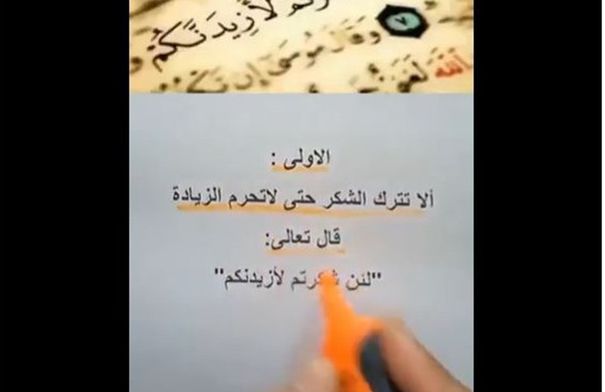 لأزيدنكم
٧ وقال موسى إن تكـ
الله لغنى
الاولى :
ألا تترك الشكر حتى لاتحرم الزيادة
قال تعالى:
"لئن شكرتم لأزيدنكم"